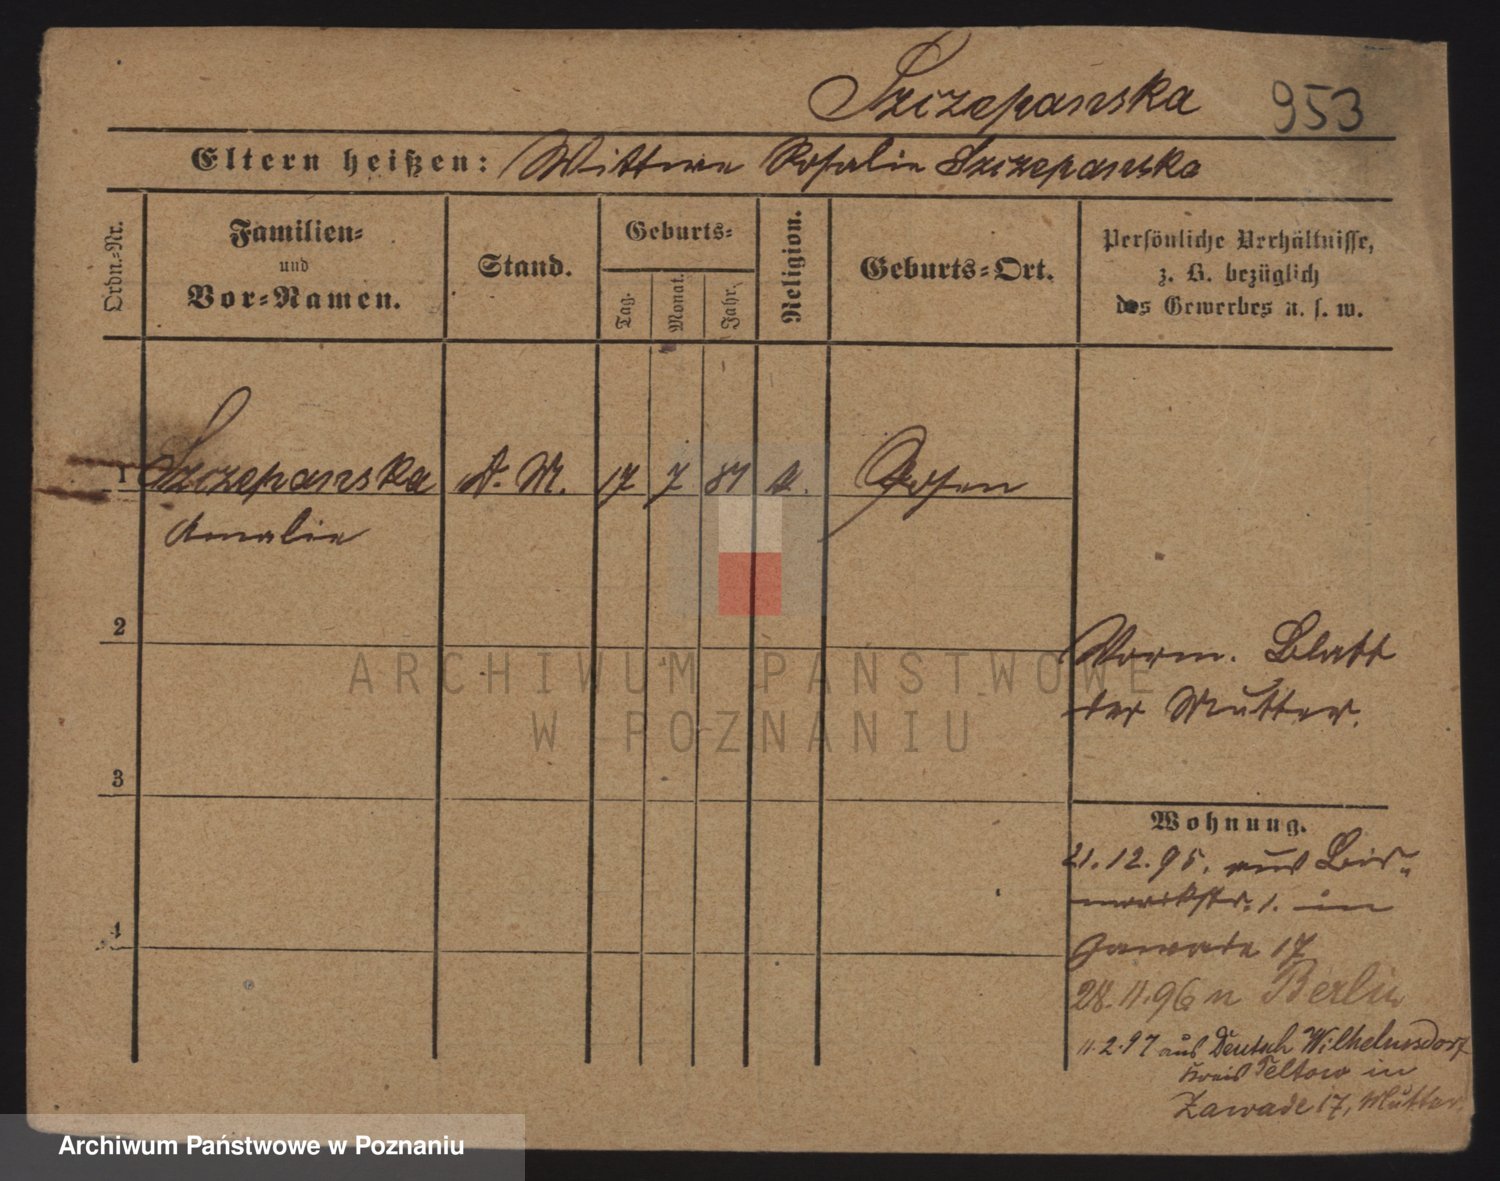 Szczepanska 953
Eltern heißen: Wittwe Rosalie Szczepanska
Ordn.-Nr.
Familien-
und
Vor-Namen.
Stand.
Geburts-
Tag.
Monat.
Jahr.
Religion.
Geburts-Ort.
Persönliche Verhältnisse,
z. B. bezüglich
des Gewerbes u. s. w.
1 Szczepanska D. M. 17 7 81 k. Posen
Amalie
2
Vorm. Blatt
der Mutter.
3
Wohnung.
21.12.95. aus Bis-
marckstr. 1. in
Zawade 17
28.11.96 n Berlin
11.2.97 aus Deutsch Wilhelmsdorf
Kreis Teltow in
Zawade 17, Mutter.
4
ARCHIWUM PAŃSTWOWE
W POZNANIU
Archiwum Państwowe w Poznaniu